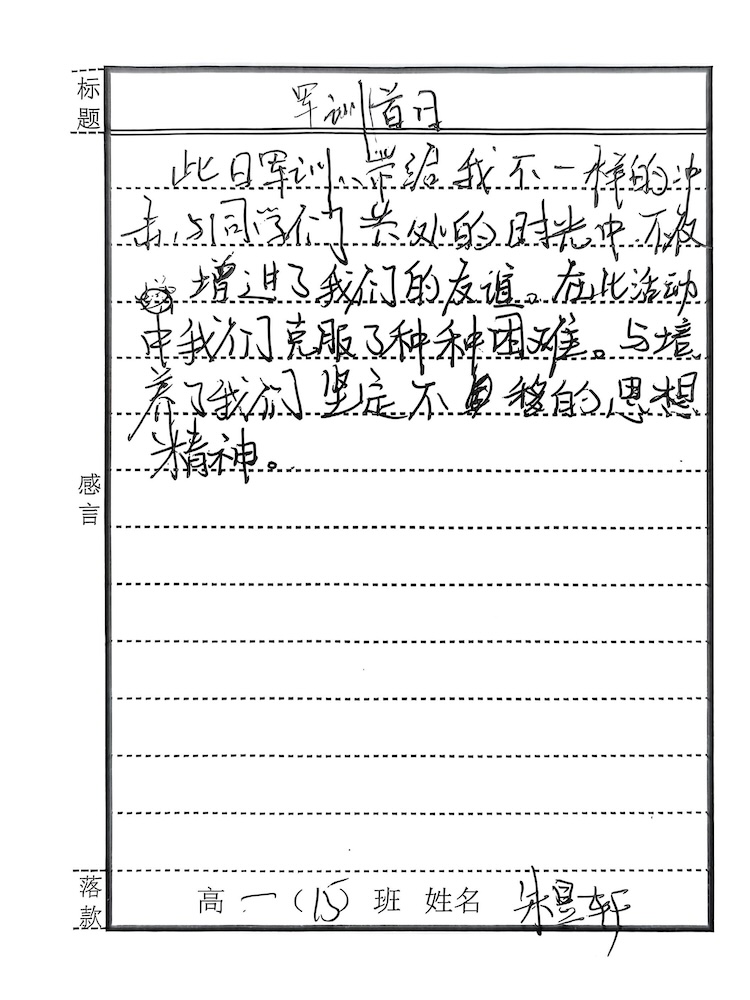 标题
军训首日
此日军训，带给我不一样的冲
击，与同学们共处的时光中，不仅
增进了我们的友谊。在此活动
中我们克服了种种困难。与境
养了我们坚定不移的思想
精神。
感言
落款
高一（15）班 姓名 朱昱轩